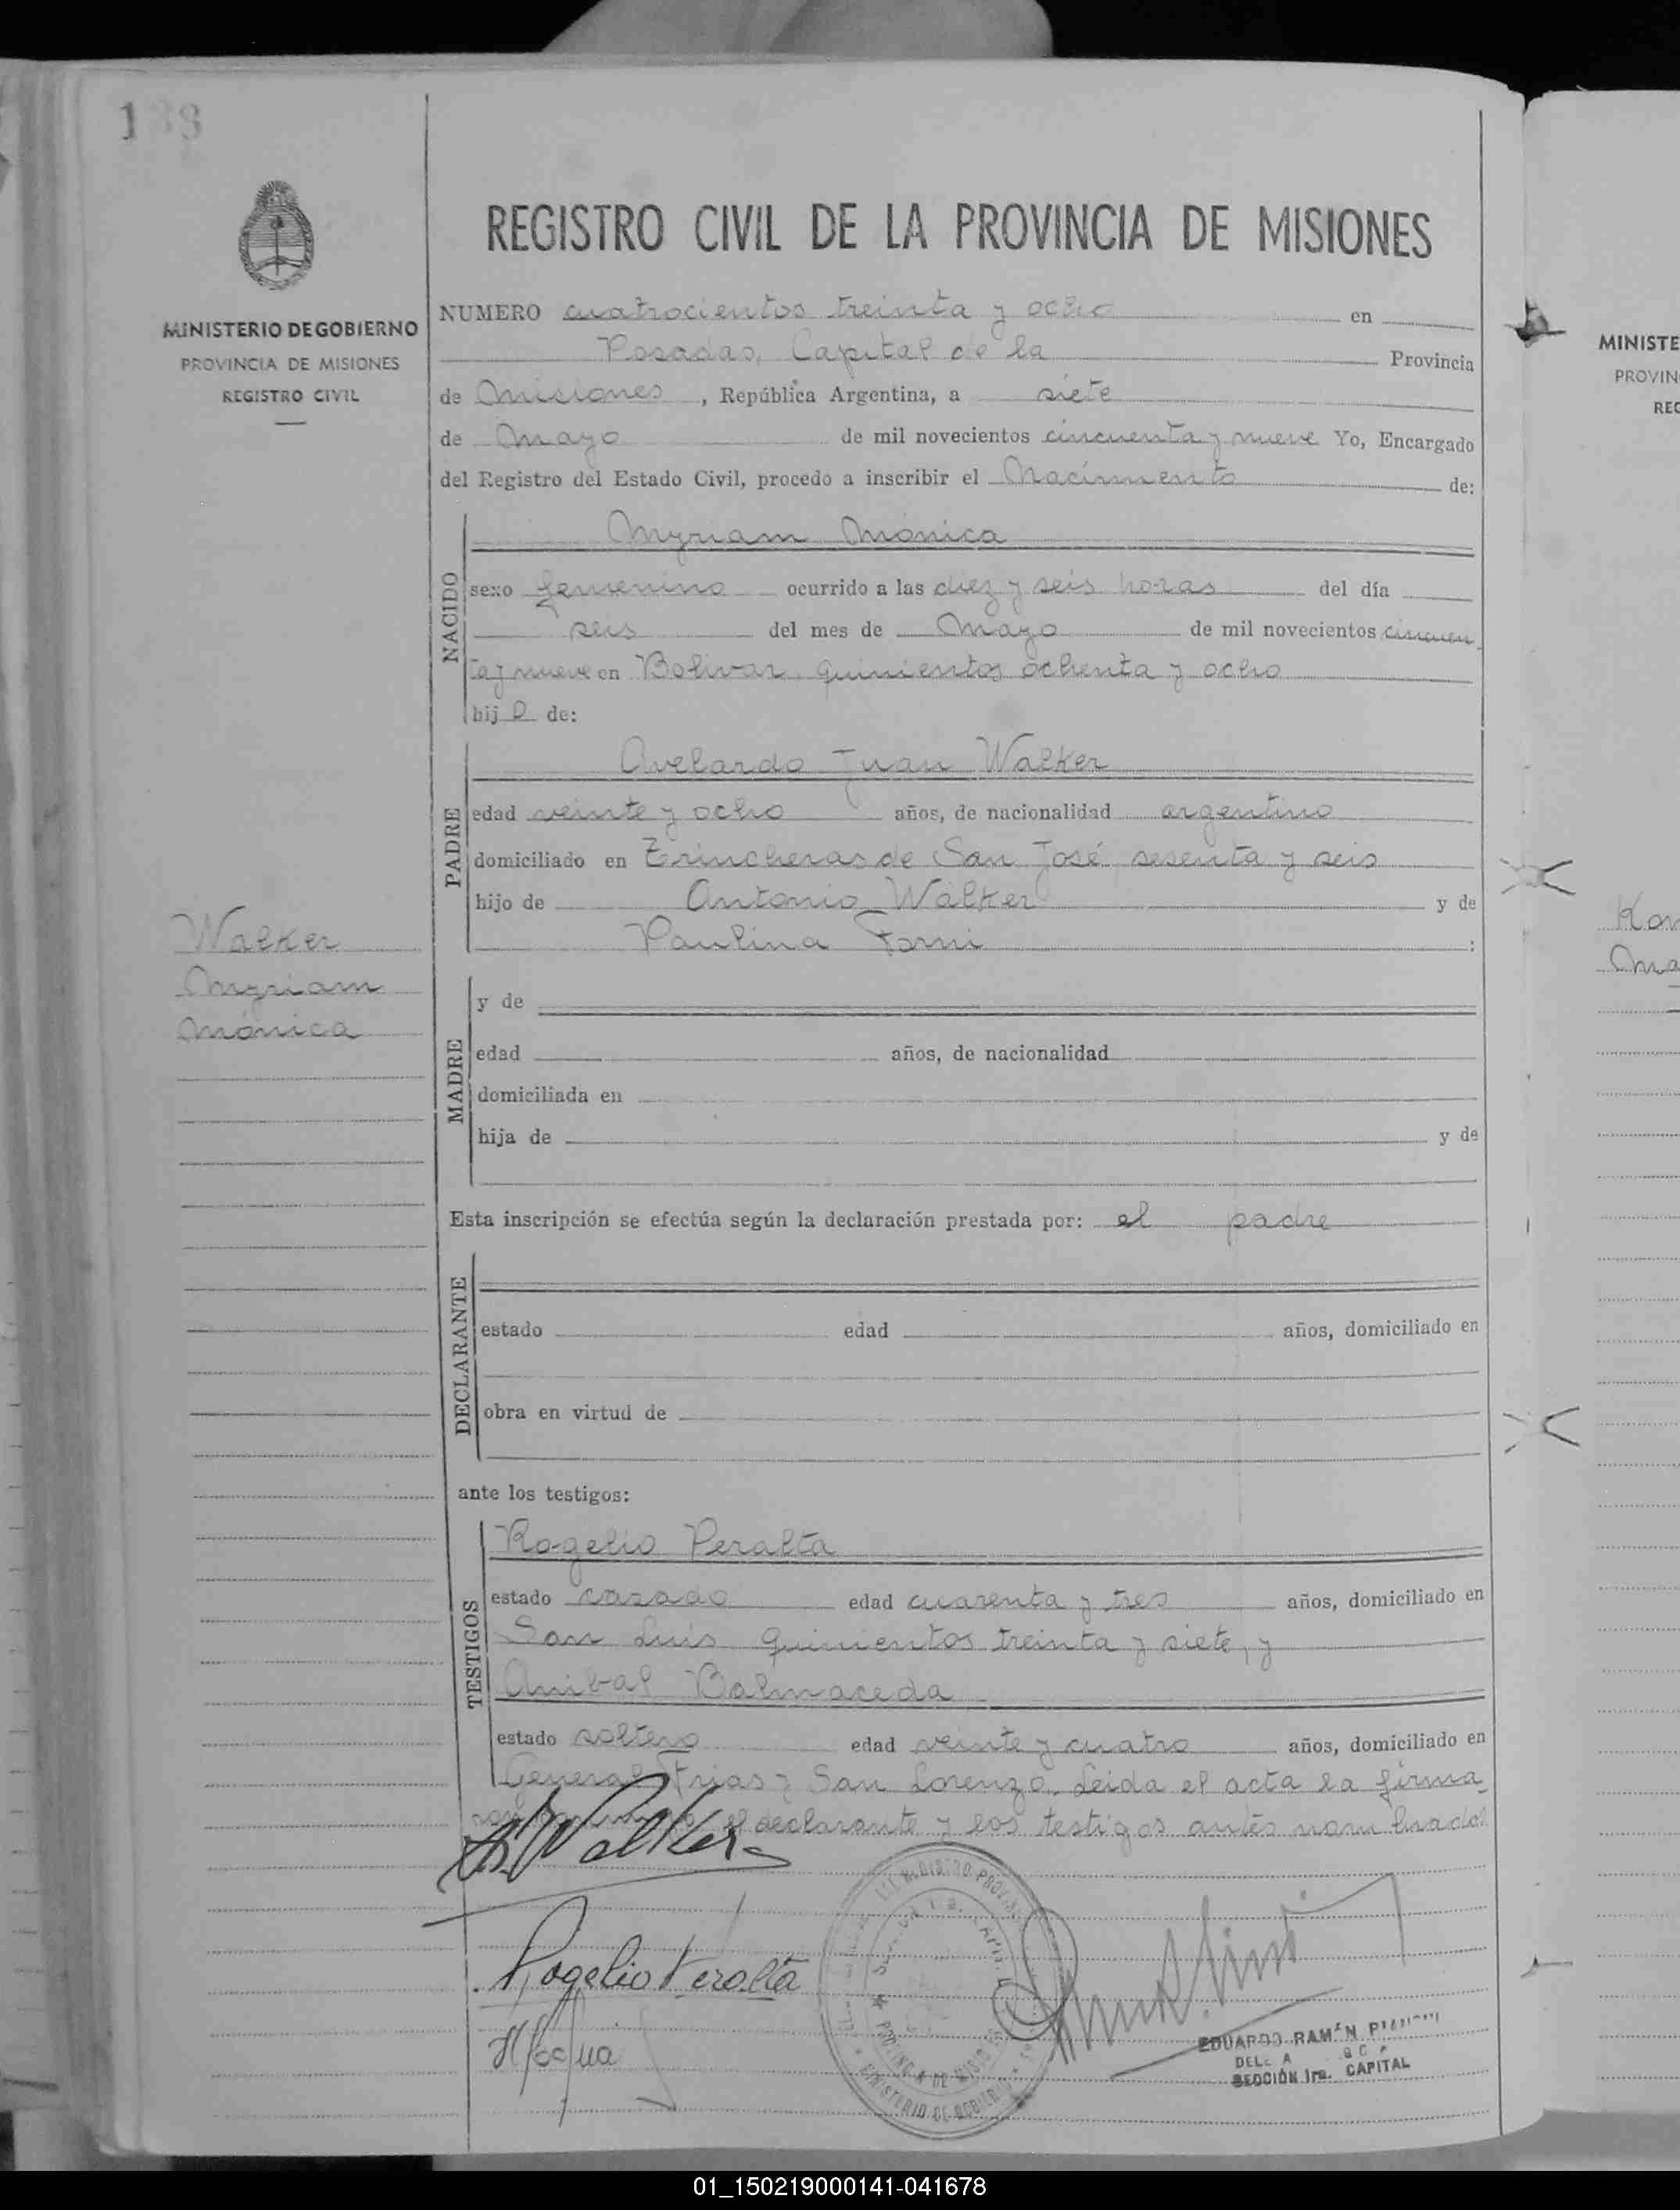 138
REGISTRO CIVIL DE LA PROVINCIA DE MISIONES
MINISTERIO DE GOBIERNO
PROVINCIA DE MISIONES
REGISTRO CIVIL
NUMERO cuatrocientos treinta y ocho en
Posadas, Capital de la Provincia
de Misiones, República Argentina, a siete
de Mayo de mil novecientos cincuenta y nueve Yo, Encargado
del Registro del Estado Civil, procedo a inscribir el Nacimiento de:
NACIDO
Myriam Mónica
sexo femenino ocurrido a las diez y seis horas del día
seis del mes de Mayo de mil novecientos cincuen
ta y nueve en Bolivar, quinientos ochenta y ocho
hij a de:
PADRE
Avelardo Juan Walker
edad veinte y ocho años, de nacionalidad argentino
domiciliado en Trincheras de San José sesenta y seis
hijo de Antonio Walker y de
Paulina Forni :
Walker
Myriam
Mónica
MADRE
y de
edad años, de nacionalidad
domiciliada en
hija de y de
Esta inscripción se efectúa según la declaración prestada por: el padre
DECLARANTE
estado edad años, domiciliado en
obra en virtud de
ante los testigos:
TESTIGOS
Rogelio Peralta
estado casado edad cuarenta y tres años, domiciliado en
San Luis quinientos treinta y siete, y
Anibal Balmaceda
estado soltero edad veinte y cuatro años, domiciliado en
General Frias y San Lorenzo. Leida el acta la firma
el declarante y los testigos antes nombrados
Walker
Rogelio Peralta
EDUARDO RAMÓN
SECCIÓN 1ra. CAPITAL
MINISTERIO DE GOBIERNO
MINISTE
PROVIN
REG
01_150219000141-041678